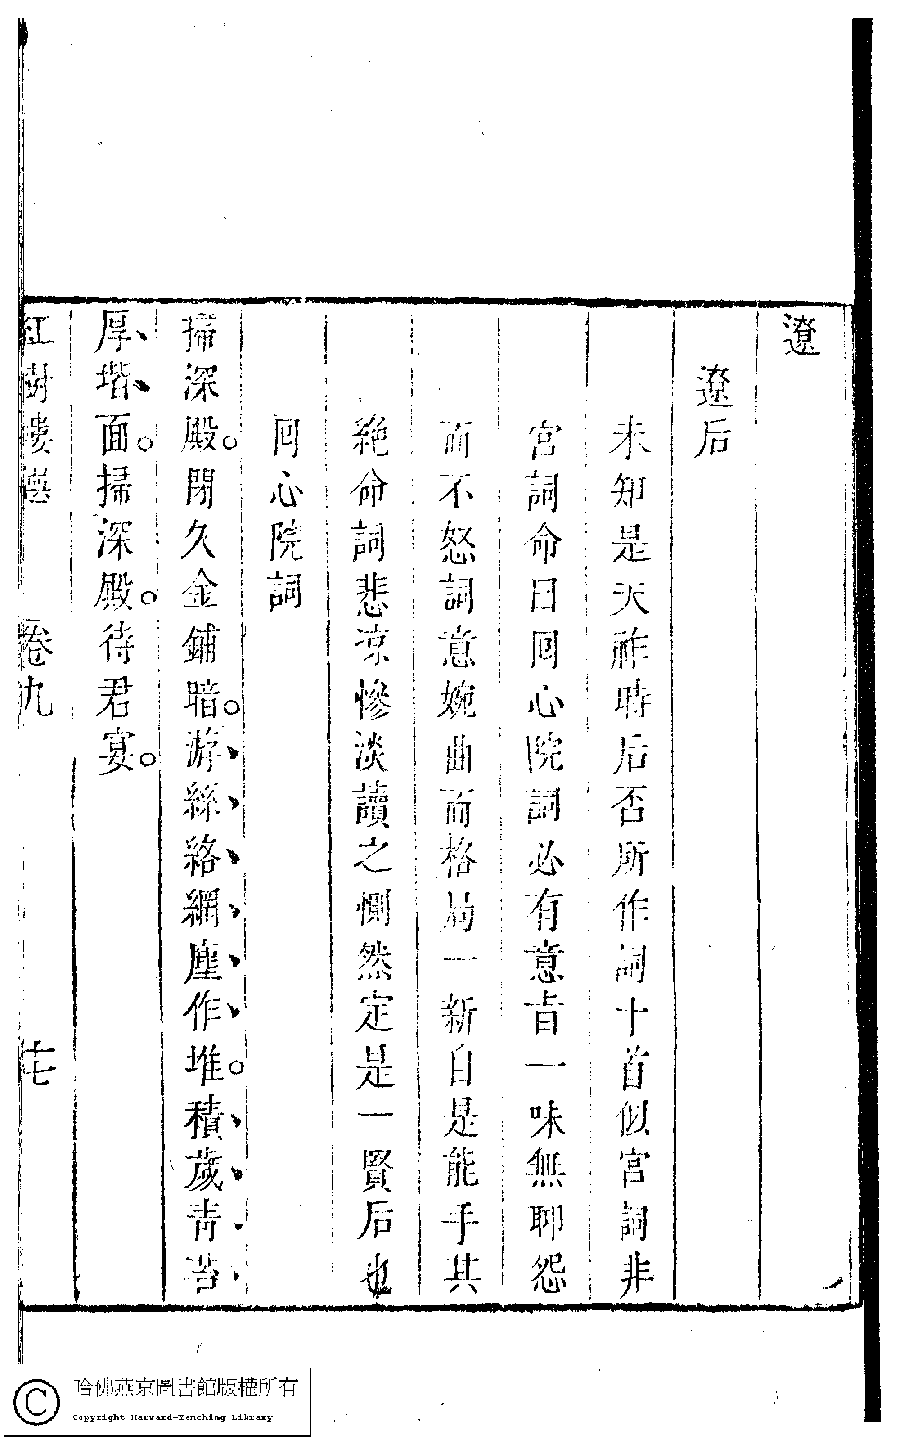 遼
遼后
未知是天祚時后否所作詞十首似宮詞非
宮詞命曰囘心院詞必有意旨一味無聊怨
而不怒詞意婉曲而格局一新自是能手其
絶命詞悲凉慘淡讀之惻然定是一賢后也
囘心院詞
掃深殿。閉久金鋪暗。游絲絡網塵作堆。積歲青苔
厚堦面。掃深殿。待君宴。
紅樹樓選 卷九 十七
哈佛燕京圖書館版權所有
Copyright Harvard-Yenching Library